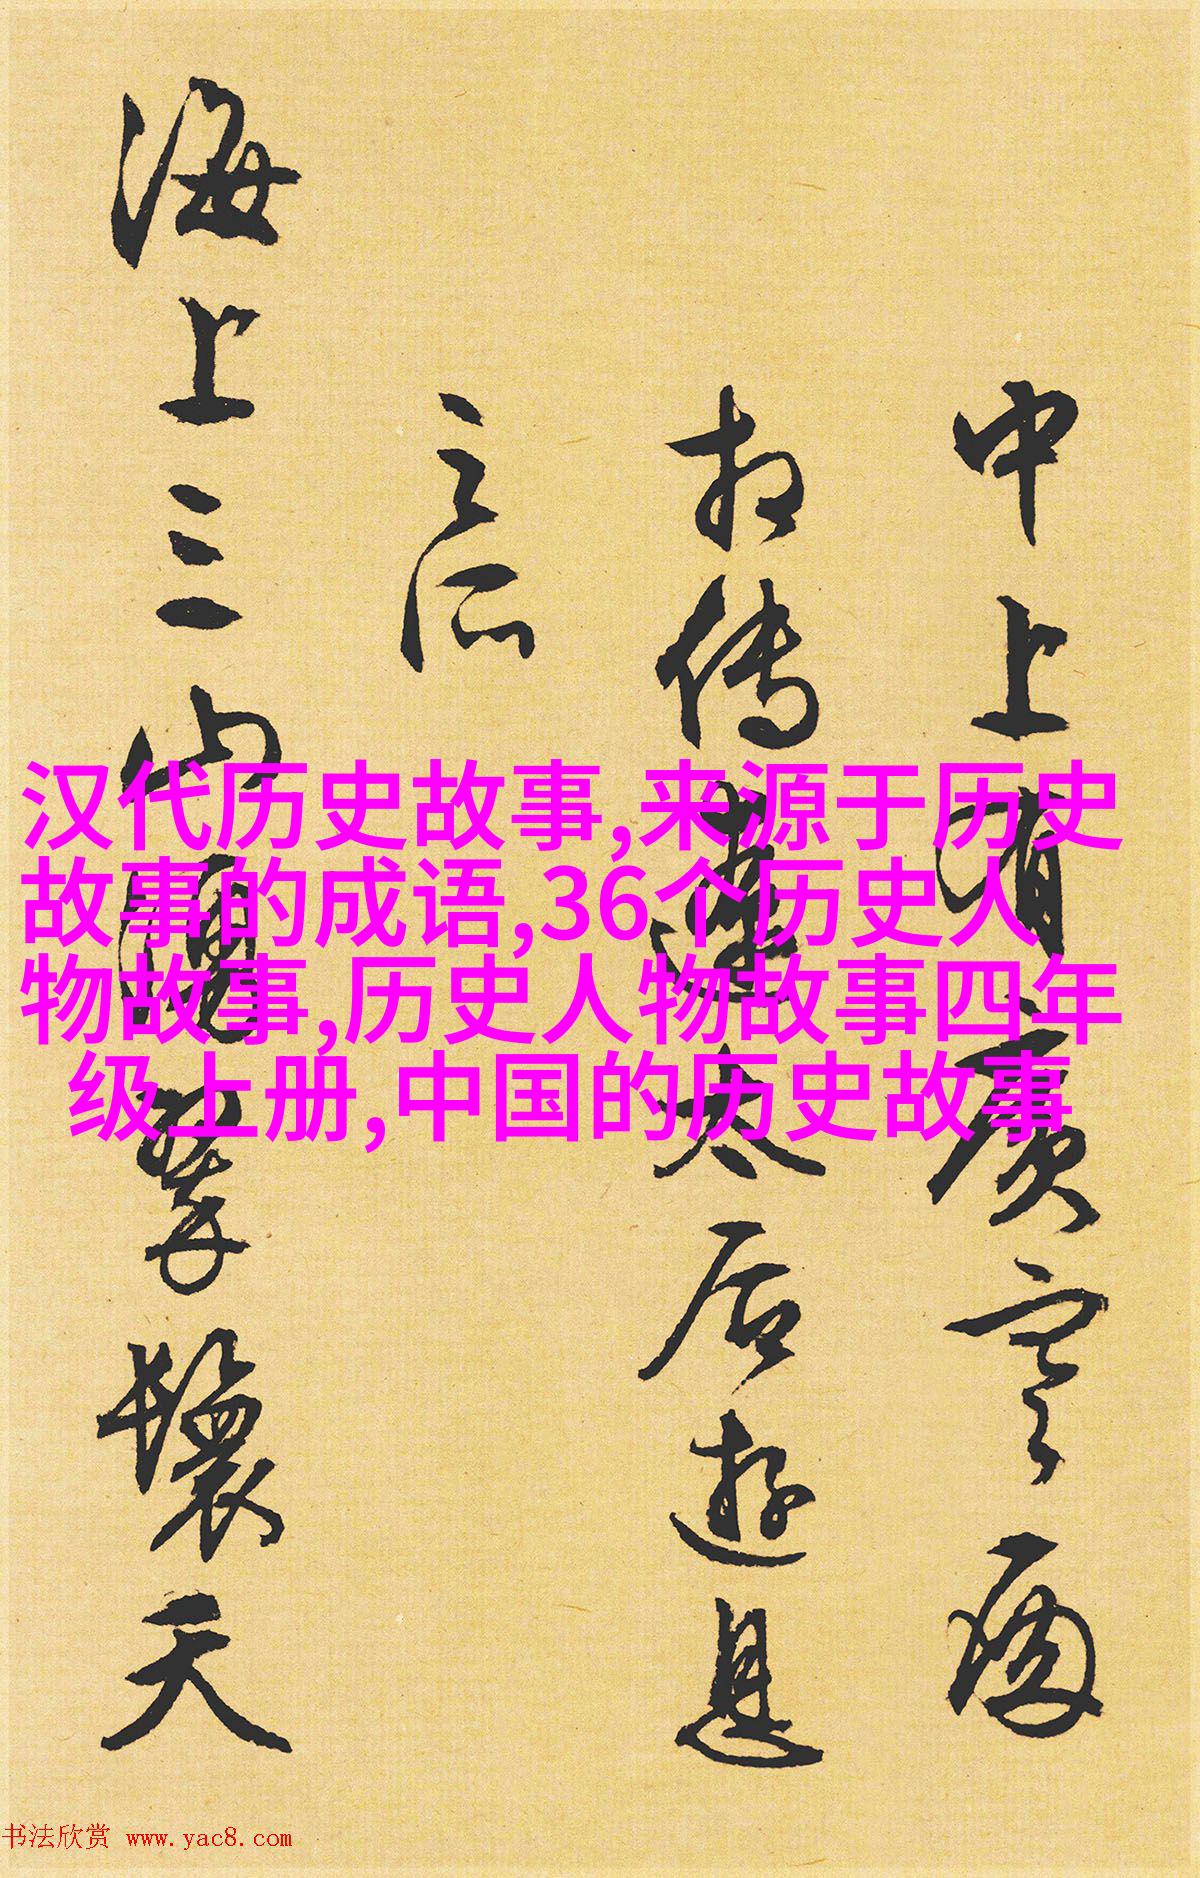 中上有廣寒
相傳遼太后遊息
之所
海上三山翠鬟天
汉代历史故事,来源于历史
故事的成语,36个历史人
物故事,历史人物故事四年
级上册,中国的历史故事
书法欣赏 www.yac8.com